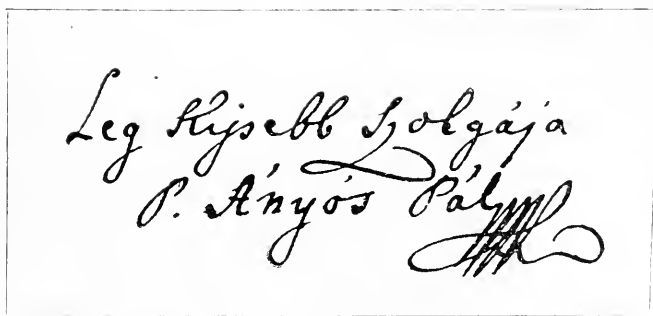 Leg Kijsebb Szolgája
P. Ányós Pál